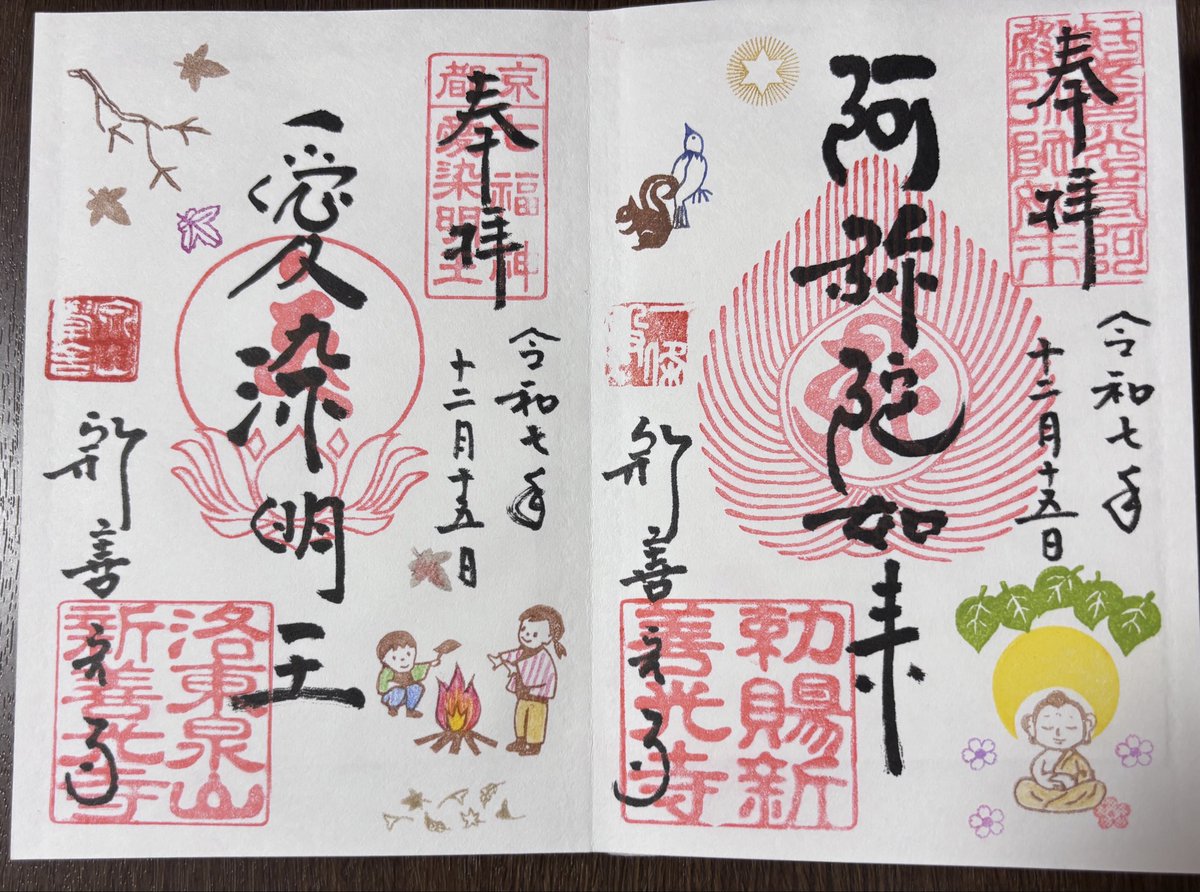 奉拝
令和七年
十二月十五日
阿弥陀如来
新善光寺
勅賜新
善光寺
奉拝
京都
七福神
愛染明王
令和七年
十二月十五日
愛染明王
新善光寺
洛東泉山
新善光寺